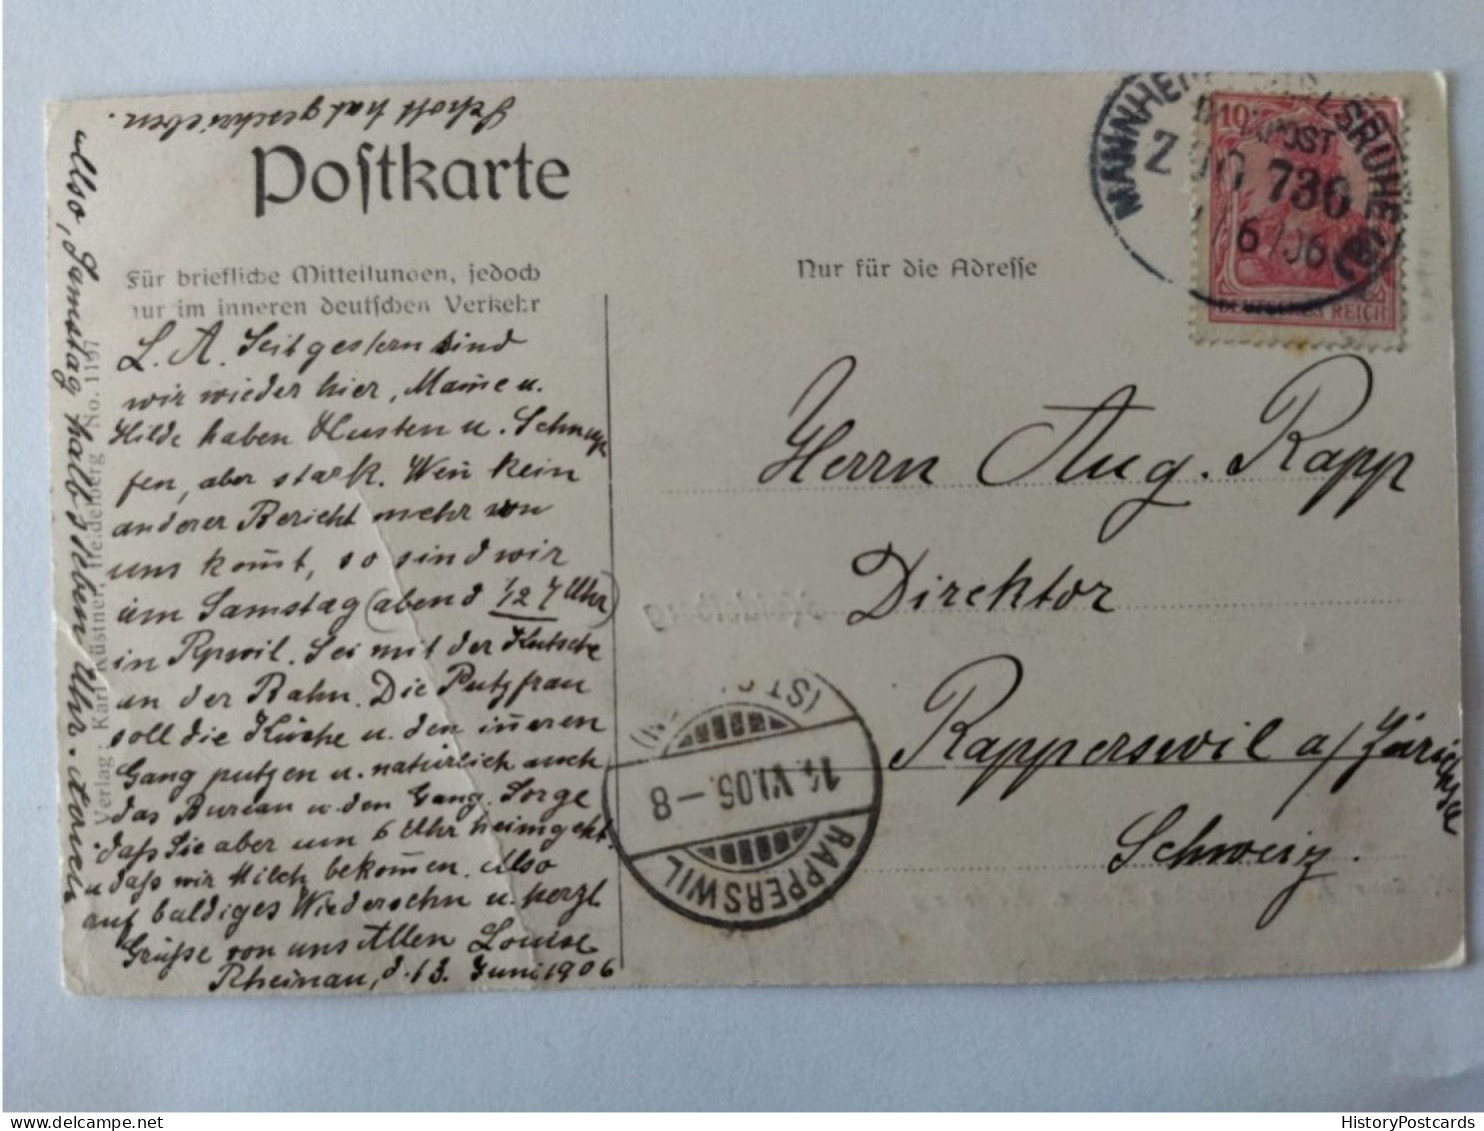 Schott hat geschrieben.
Postkarte
Für briefliche Mitteilungen, jedoch
nur im inneren deutschen Verkehr
Nur für die Adresse
MANNHEIM KARLSRUHE
BAHNPOST
ZUG 736
/6/06
10
DEUTSCHES REICH
L. A. Seit gestern sind
wir wieder hier, Mam̄e u.
Hilde haben Husten u. Schnup
fen, aber stark. Wen̄ kein
anderer Bericht mehr von
uns kom̄t, so sind wir
am Samstag (abend 1/2 7 Uhr)
in Rpwil. Sei mit der Kutsche
an der Bahn. Die Putzfrau
soll die Küche u. den in̄eren
Gang putzen u. natürlich auch
das Bureau u. den Gang. Sorge
daß Sie aber um 6 Uhr heimgeht.
u daß wir Milch bekom̄en. Also
auf baldiges Wiedersehn u. herzl
Grüße von uns Allen Louise
Rheinau, d. 13. Juni 1906
Also, Samstag halb sieben Uhr.
Verlag: Karl Küstner, Heidelberg No. 1197
Herrn Aug. Rapp
Direktor
Rapperswil a/ Zürichsee
Schweiz.
14. VI. 06. – 8
RAPPERSWIL
HistoryPostcards